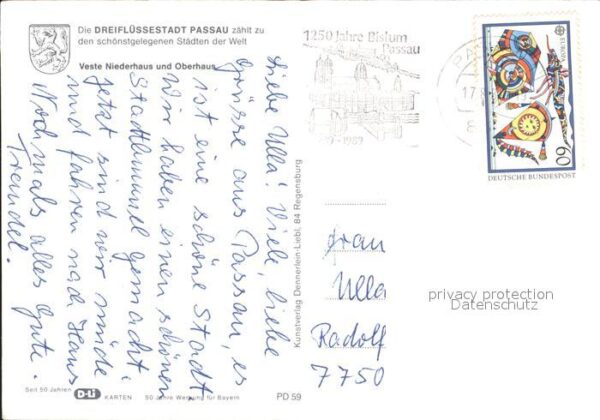 Die DREIFLÜSSESTADT PASSAU zählt zu
den schönstgelegenen Städten der Welt
Veste Niederhaus und Oberhaus
Liebe Ulla! Viele, liebe
Grüsse aus Passau, es
ist eine schöne Stadt.
Wir haben einen schönen
Stadtbummel gemacht.
Jetzt sind wir müde
und fahren nach Haus
Nochmals alles Gute.
Traudel.
Seit 50 Jahren D-Li KARTEN 50 Jahre Werbung für Bayern
PD 59
Kunstverlag Dennerlein-Liebl, 84 Regensburg
1250 Jahre Bistum
Passau
1989
17
EUROPA
60
DEUTSCHE BUNDESPOST
Frau
Ulla
Radolf
7750
privacy protection
Datenschutz